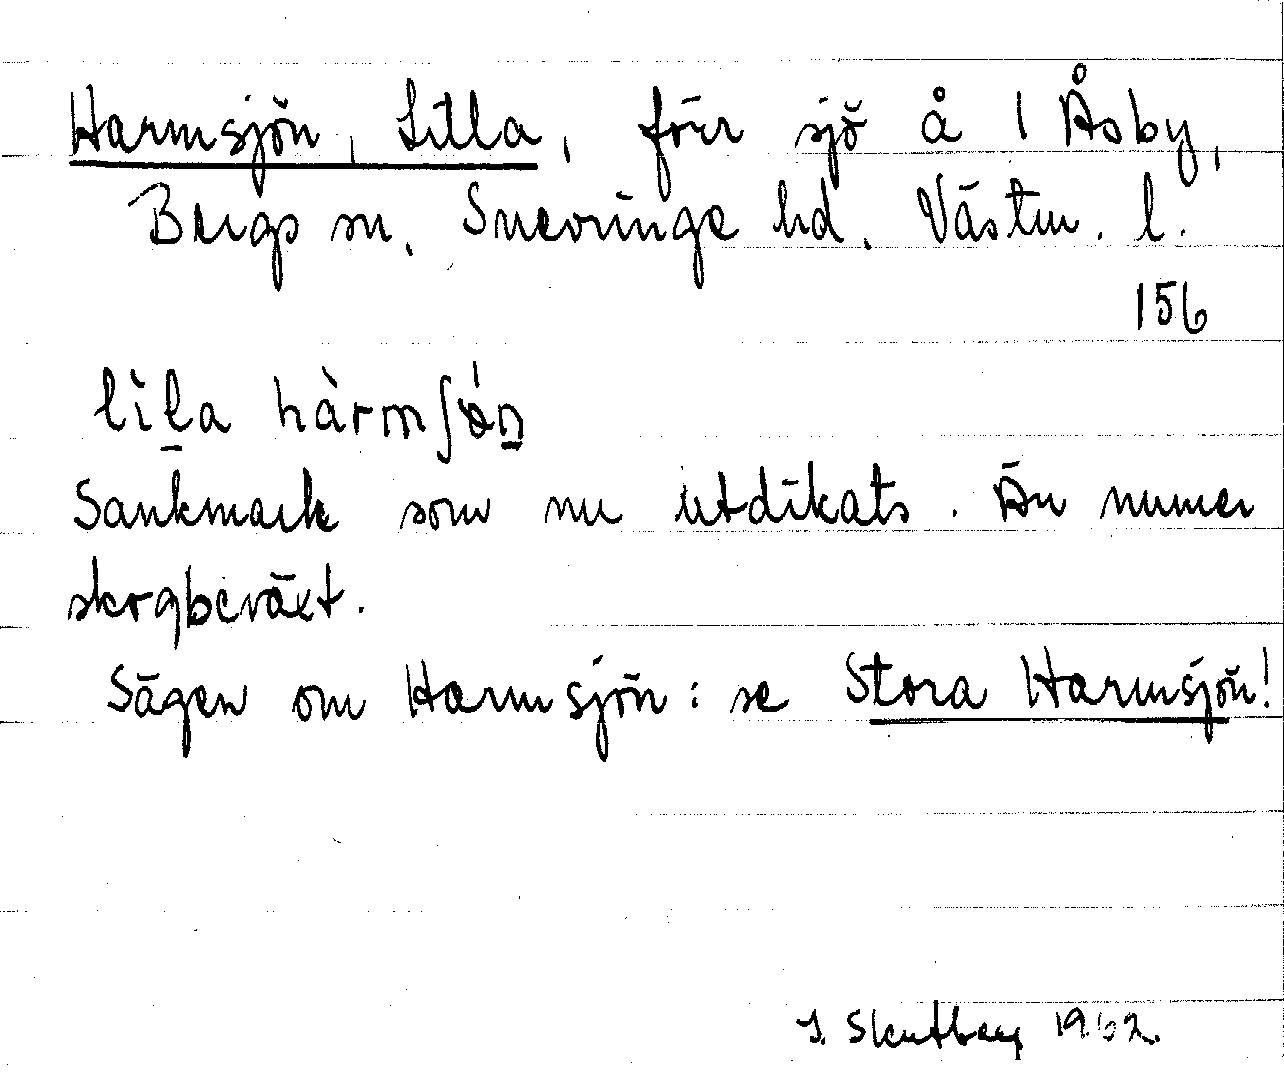 Harmsjön, Lilla, förr sjö å 1 Åsby,
Bergs sn, Snevringe hd. Västm. l.
156
lìla hàrmʃǿn
Sankmark som nu utdikats. Än numer
skogbeväxt.
Sägen om Harmsjön: se Stora Harmsjön!
S. Skutberg 1962.